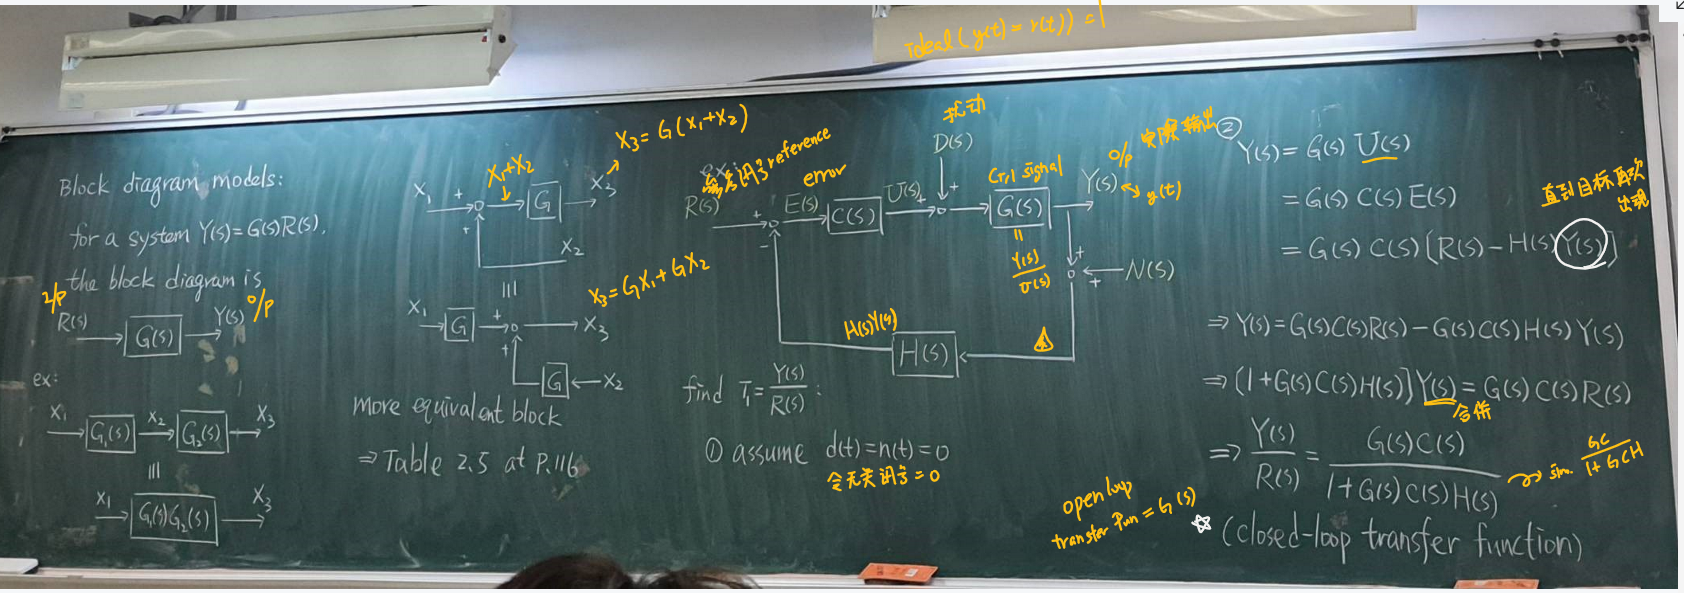 Ideal (y(t) = r(t)) = 1
Block diagram models:
for a system Y(s)=G(s)R(s),
the block diagram is
I/P
R(s)
G(s)
Y(s)
O/P
ex:
X₁
G₁(s)
X₂
G₂(s)
X₃
|||
X₁
G₁(s)G₂(s)
X₃
X₃ = G(X₁+X₂)
X₁+X₂
X₁
+
G
X₃
+
X₂
|||
X₃ = GX₁ + GX₂
X₁
G
+
X₃
+
G
X₂
More equivalent block
⇒ Table 2.5 at P.116
ex:
reference
R(s)
+
-
error
E(s)
C(s)
U(s)
+
扰动
D(s)
+
Ctrl signal
G(s)
||
Y(s)/U(s)
O/P
实际输出
Y(s)
y(t)
+
N(s)
+
H(s)Y(s)
H(s)
find T₁ = Y(s)/R(s) :
① assume d(t)=n(t)=0
令无关因子=0
② Y(s) = G(s) U(s)
= G(s) C(s) E(s)
= G(s) C(s) [R(s) - H(s) Y(s)]
直到目标再次
出现
⇒ Y(s) = G(s)C(s)R(s) - G(s)C(s)H(s) Y(s)
⇒ (1+G(s)C(s)H(s)] Y(s) = G(s)C(s)R(s)
合併
⇒ Y(s)/R(s) = G(s)C(s)/1+G(s)C(s)H(s)
sim. GC/1+GCH
open loop
transfer fun = G(s)
☆ (closed-loop transfer function)